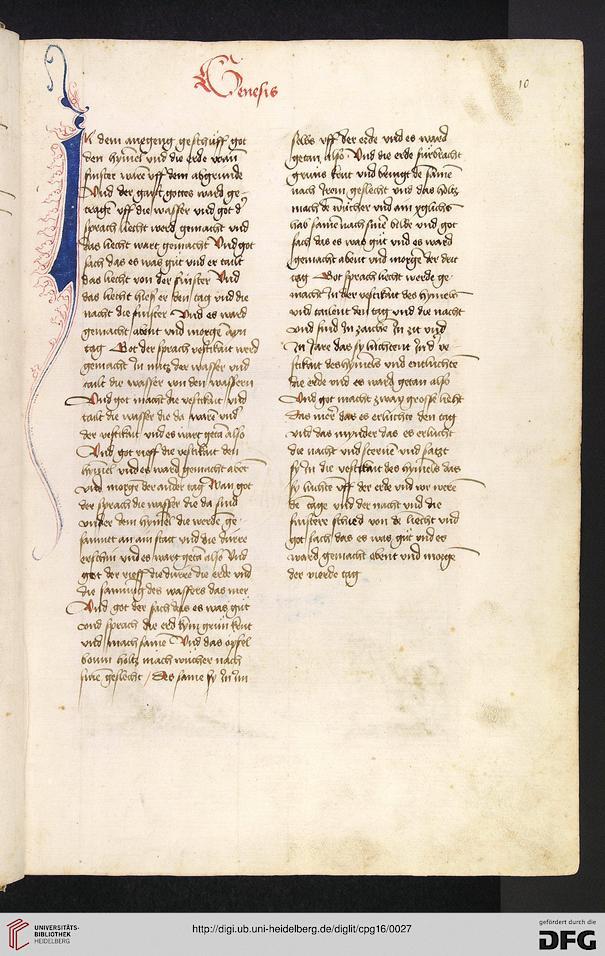 Genesis
10
In dem anegeng geschuff got
den hymel und die erde wan
finster ware uff dem abgrunde
Und der gaist gottes ward ge-
tragē uff die wasser vnd got d'
sprach liecht werd gemacht vnd
das liecht wart gemacht Und got
sach das es was gůt vnd er tailt
das liecht von der finster Und
das liecht hiesß er den tag vnd die
nacht die finster Und es ward
gemacht abent vnd morgē ayn
tag Got der sprach vestikait werd
gemacht In mitz der wasser vnd
tailt die wasser von den wassern
Und got macht die vestikait vnd
tailt die wasser die da warē vnd'
der vestikait vnd es wart getā also
Und got rieff die vestikait den
hymel vnd es ward gemacht abet
vnd morgē der ander tag Wan got
der sprach die wasser die da sind
vnder dem hymel die werdē ge-
samnet an ain statt vnd die durre
erschin vnd es wart getā also Und
got der rieff die durre die erde vnd
die samnūg des wassers das mer
Und got der sach das es was gůt
vnd sprach die erd kym grün krut
vnd mach samē Und das öpfel
boum holtz mach wůcher nach
sinē geslecht / Des same sy In im
selbs uff der erde vnd es ward
getan also Und die erde fürbracht
grüns krut vnd bringt dē samē
nach Irem geslecht vnd das holtz
mach dē wůcher vnd am yglichs
hab samē nach sinē bilde vnd got
sach das es was gůt vnd es ward
gemacht abent vnd morgē der drit
tag Got sprach liecht werde ge-
macht In der vestikait des hymels
vnd tailent den tag vnd die nacht
vnd sind In zaichē In zit vnd
In Jare das sy lüchtent Ind' ve-
stikait des hymels vnd erlüchtē
die erde vnd es ward getan also
Und got macht zway grosse liecht
das mer das es erlüchte den tag
vnd das mynder das es erlücht
die nacht vnd sternē vnd satzt
sy In die vestikait des hymels das
sy lüchtē uff der erde vnd vor werē
dē tage vnd der nacht vnd die
finstere schied von dē liecht vnd
got sach das es was gůt vnd es
ward gemacht abent vnd morgē
der vierde tag
UNIVERSITÄTS-
BIBLIOTHEK
HEIDELBERG
http://digi.ub.uni-heidelberg.de/diglit/cpg16/0027
gefördert durch die
DFG